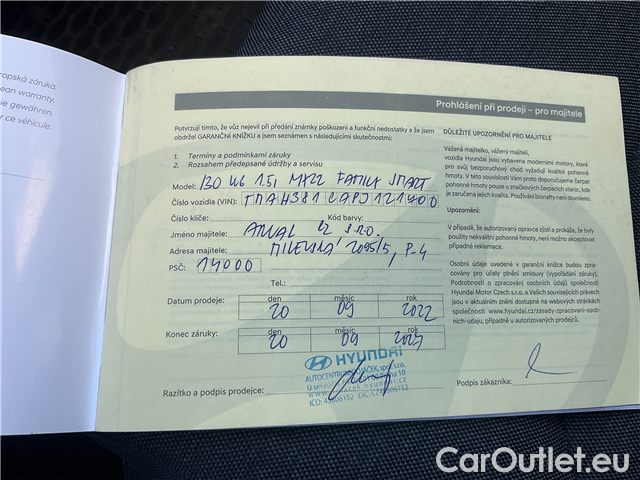 ropská záruka.
ean warranty.
ie gewähren.
r ce véhicule.
Prohlášení při prodeji – pro majitele
Potvrzuji tímto, že vůz nejevil při předání známky poškození a funkční nedostatky a že jsem
obdržel GARANČNÍ KNÍŽKU a jsem seznámen s následujícími skutečnostmi:
1. Termíny a podmínkami záruky
2. Rozsahem předepsané údržby a servisu
Model: I30 WG 1.5i MY22 FAMILY SMART
Číslo vozidla (VIN): TMAH381
Číslo klíče: Kód barvy:
Jméno majitele: ARVAL CZ S.R.O.
Adresa majitele: MILEVSKÁ 2095/5, P-4
PSČ: 14000
Tel.:
Datum prodeje: den měsíc rok
20 09 2022
Konec záruky: den měsíc rok
20 09
HYUNDAI
Razítko a podpis prodejce:
DŮLEŽITÉ UPOZORNĚNÍ PRO MAJITELE
Vážená majitelko, vážený majiteli,
vozidla Hyundai jsou vybavena moderními motory, které
pro svůj bezporuchový chod vyžadují kvalitní pohonné
hmoty. V této souvislosti Vám proto doporučujeme čerpat
pohonné hmoty pouze u značkových čerpacích stanic, kde
je zaručena jejich kvalita. Používání bionafty není dovoleno.
Upozornění:
V případě, že autorizovaný opravce zjistí a prokáže, že byly
použity nekvalitní pohonné hmoty, není možno akceptovat
případné reklamace.
Osobní údaje uvedené v garanční knížce budou zpra-
covány pro účely plnění smlouvy (vypořádání záruky).
Podrobnosti o zpracování osobních údajů společností
Hyundai Motor Czech s.r.o. a Vašich souvisejících právech
jsou v aktuálním znění dostupné na webových stránkách
společnosti www.hyundai.cz/zasady-zpracovani-osob-
nich-udaju, případně u autorizovaných prodejců.
Podpis zákazníka:
CarOutlet.eu